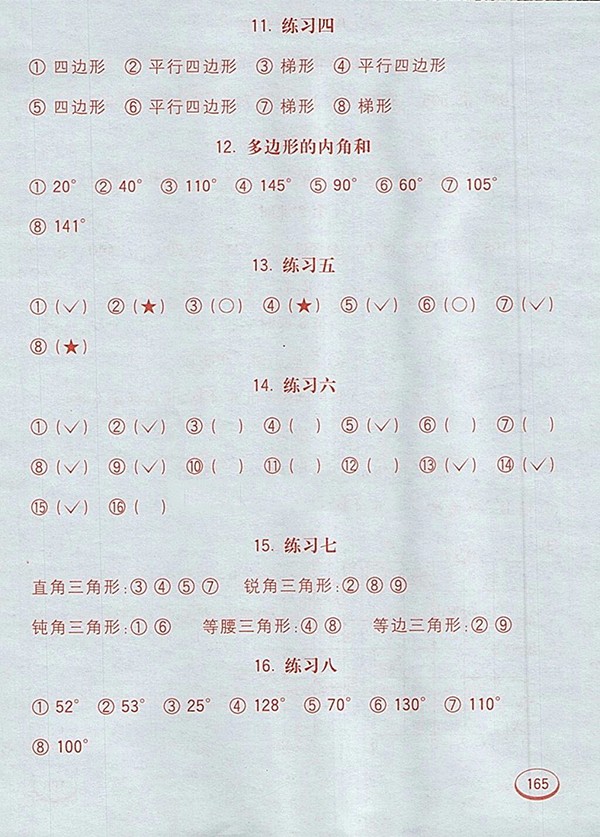 11. 练习四
① 四边形 ② 平行四边形 ③ 梯形 ④ 平行四边形
⑤ 四边形 ⑥ 平行四边形 ⑦ 梯形 ⑧ 梯形
12. 多边形的内角和
① 20° ② 40° ③ 110° ④ 145° ⑤ 90° ⑥ 60° ⑦ 105°
⑧ 141°
13. 练习五
① (✓) ② (★) ③ (○) ④ (★) ⑤ (✓) ⑥ (○) ⑦ (✓)
⑧ (★)
14. 练习六
① (✓) ② (✓) ③ ( ) ④ ( ) ⑤ (✓) ⑥ ( ) ⑦ ( )
⑧ (✓) ⑨ (✓) ⑩ ( ) ⑪ ( ) ⑫ ( ) ⑬ (✓) ⑭ (✓)
⑮ (✓) ⑯ ( )
15. 练习七
直角三角形:③ ④ ⑤ ⑦ 锐角三角形:② ⑧ ⑨
钝角三角形:① ⑥ 等腰三角形:④ ⑧ 等边三角形:② ⑨
16. 练习八
① 52° ② 53° ③ 25° ④ 128° ⑤ 70° ⑥ 130° ⑦ 110°
⑧ 100°
165